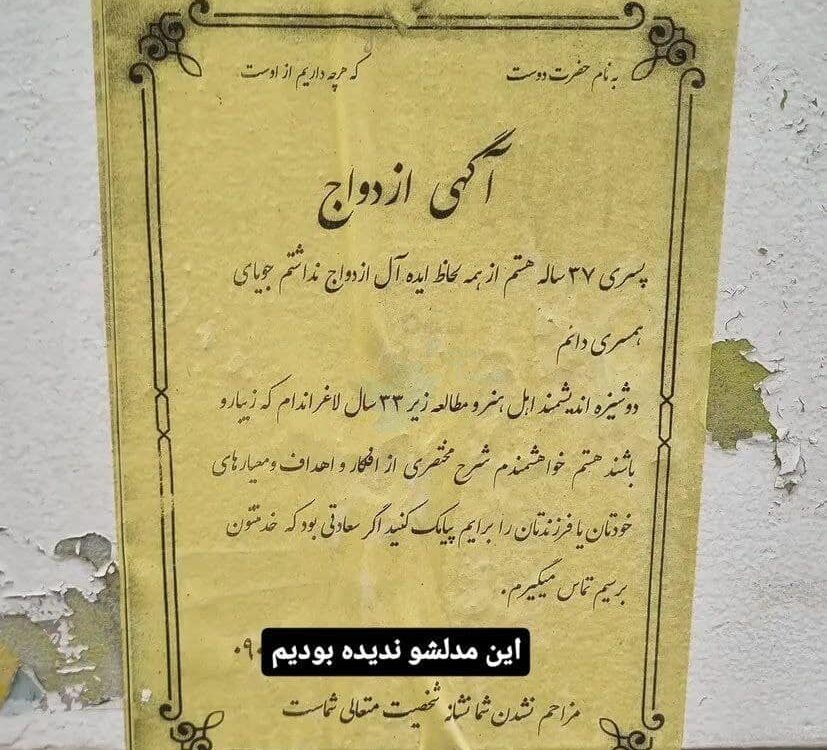 به نام حضرت دوست که هر چه داریم از اوست
آگهی ازدواج
پسری ۳۷ ساله هستم از همه لحاظ ایده آل ازدواج نداشتم جویای
همسری دائم
دوشیزه اندیشمند اهل هنر و مطالعه زیر ۳۳ سال لاغر اندام که زیبارو
باشند هستم خواهشمندم شرح مختصری از افکار و اهداف و معیارهای
خودتان یا فرزندتان را برایم پیامک کنید اگر سعادتی بود که خدمتتون
برسیم تماس میگیرم.
۰۹۰
این مدلشو ندیده بودیم
مزاحم نشدن شما نشانه شخصیت متعالی شماست